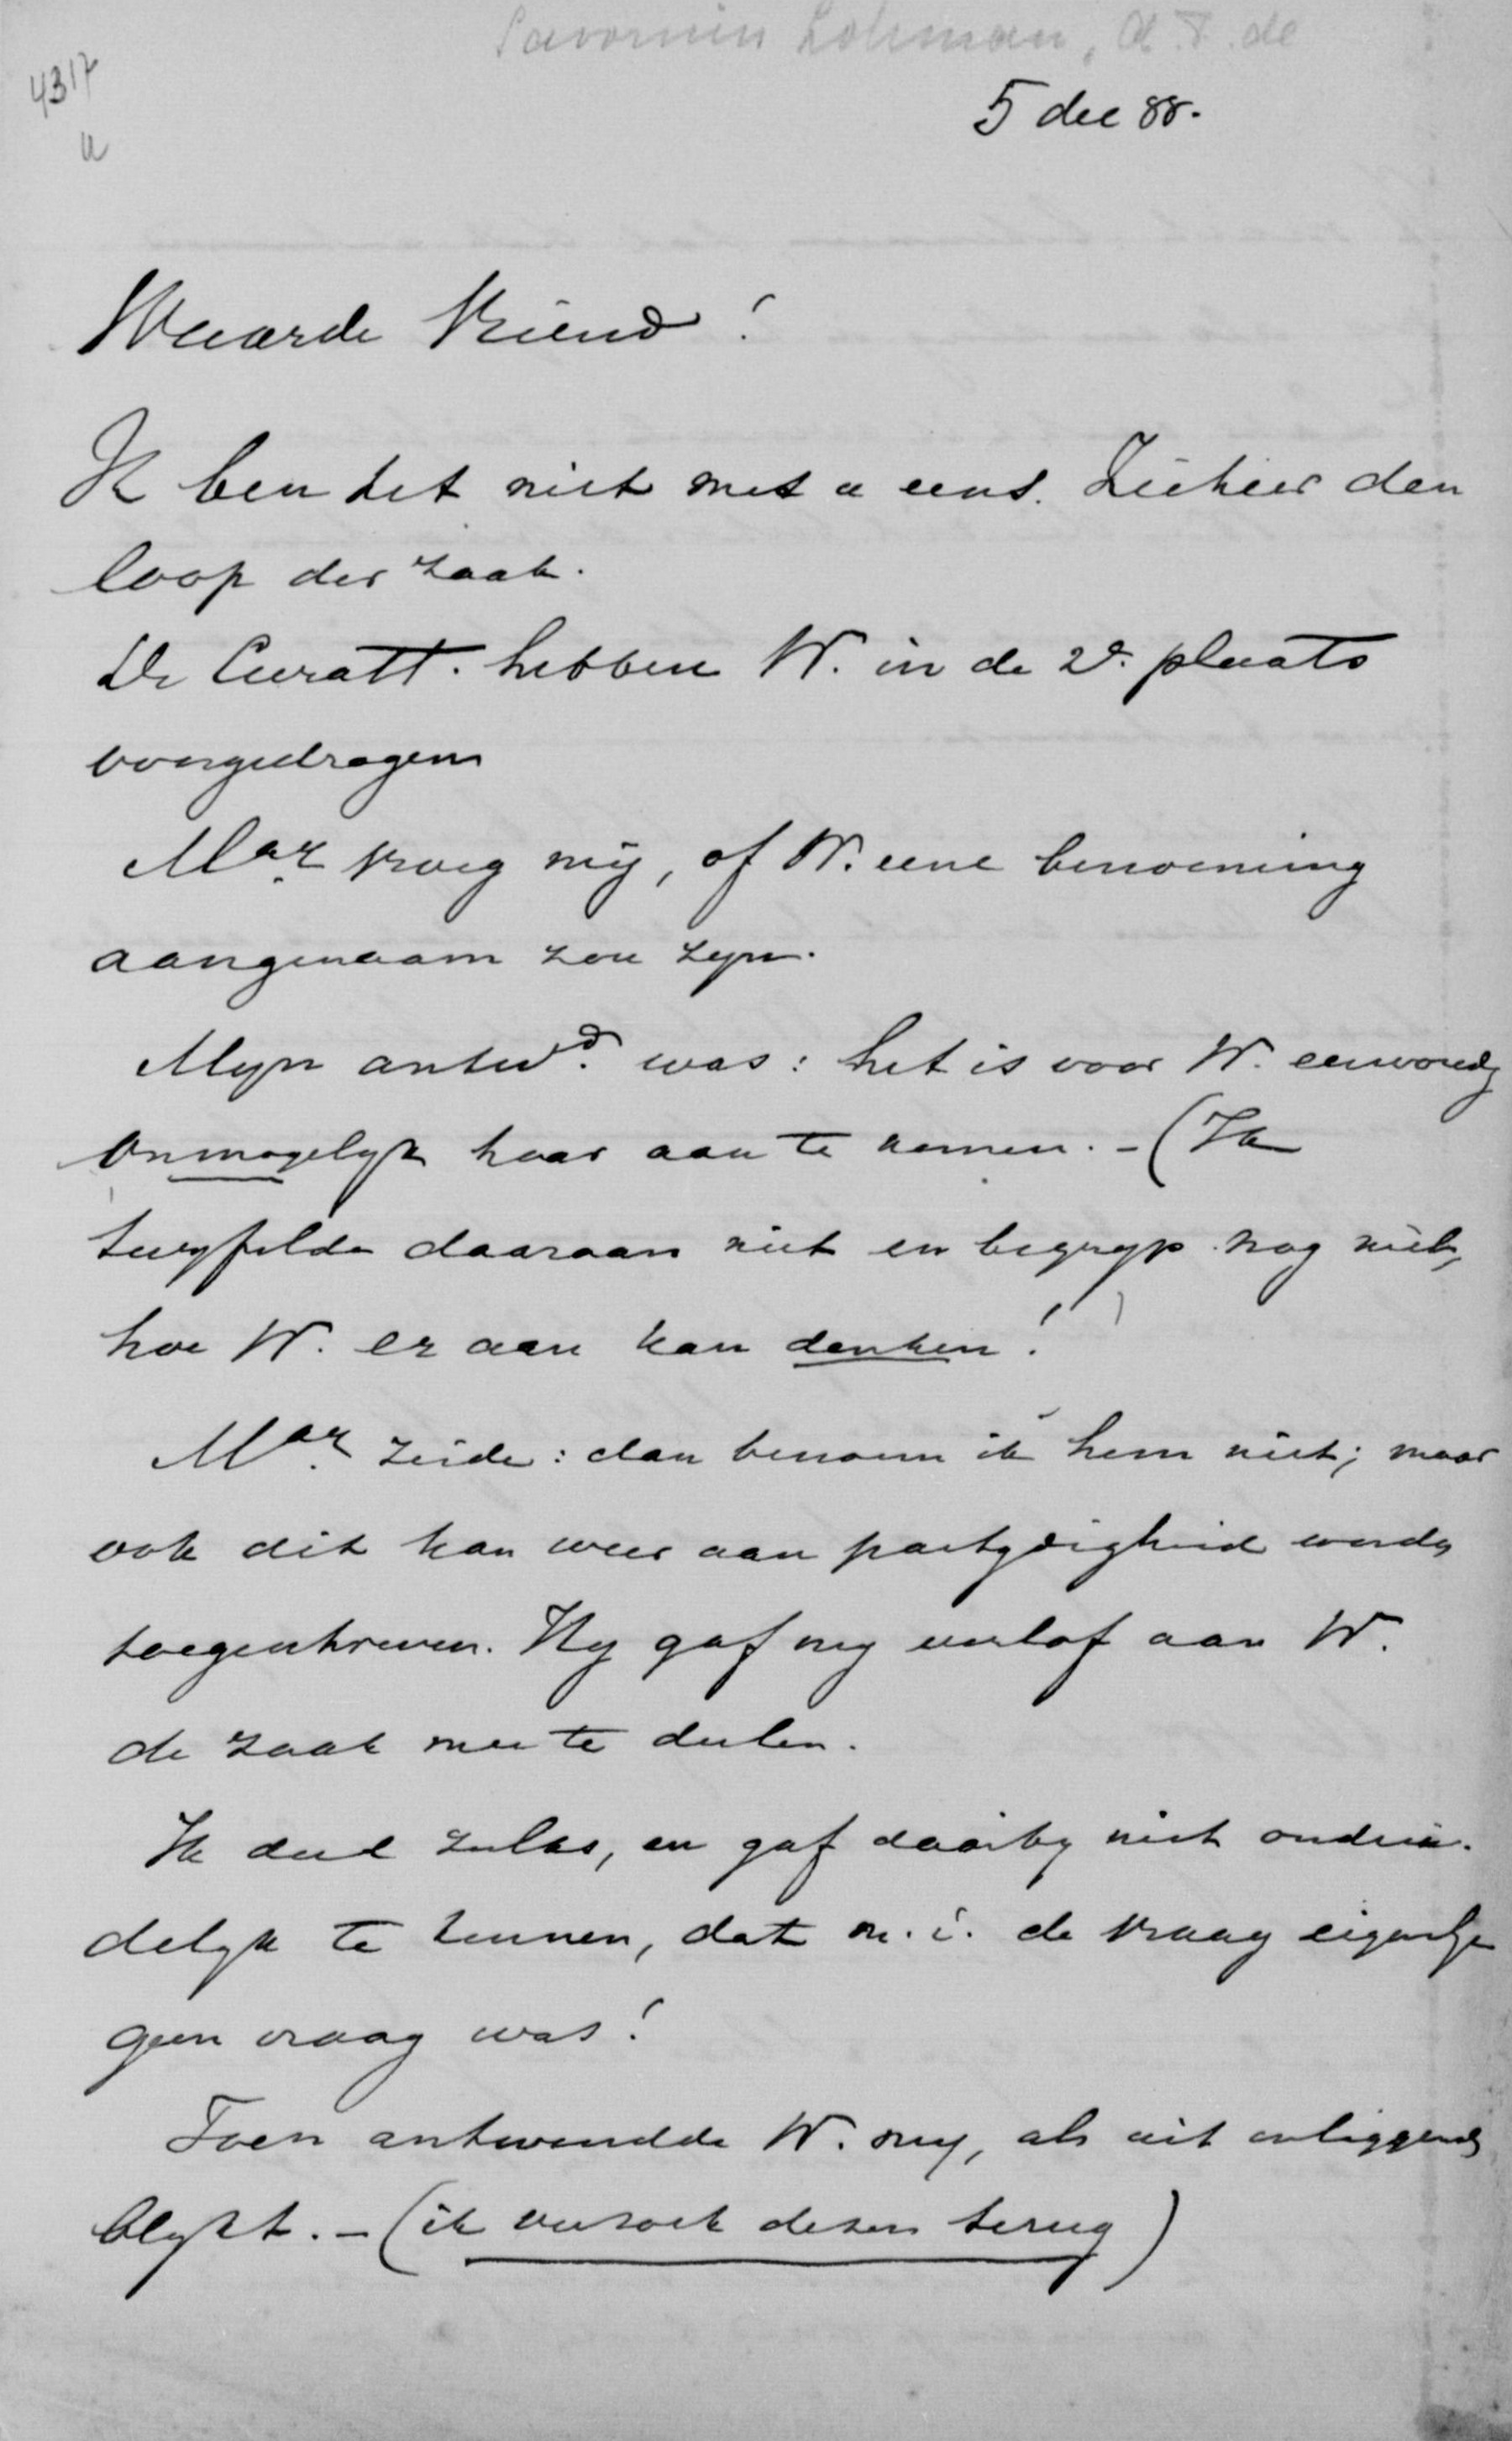 Savornin Lohman, A.F. de
4317
a
5 dec 88.
Waarde Vriend!
Ik ben het niet met u eens. Ziehier den
loop der zaak.
De Curatt. hebben W. in de 2e. plaats
voorgedragen
Mar. vroeg mij, of W. eene benoeming
aangenaam zou zyn.
Myn antwd. was: het is voor W. eenvoudig
onmogelyk haar aan te nemen. - (Ik
twyfelde daaraan niet en begryp nog niet,
hoe W. er aan kan denken!)
Mar. zeide: dan benoem ik hem niet; maar
ook dit kan weer aan partydigheid worden
toegeschreven. Hy gaf my verlof aan W.
de zaak mee te deelen.
Ik deed zulks, en gaf daarby niet ondui-
delyk te kennen, dat m.i. de vraag eigenlyk
geen vraag was!
Toen antwoordde W. my, als uit inliggende
blykt. - (ik verzoek dezen terug)